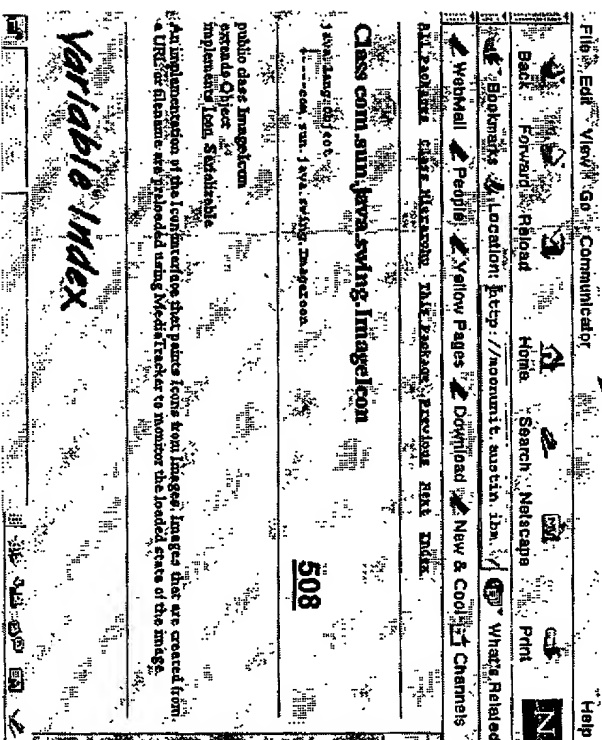 File Edit View Go Communicator Help
Back Forward Reload Home Search Netscape Print
Bookmarks Location: http://moonunit.austin.ibm. What's Related
WebMail People Yellow Pages Download New & Cool Channels
All Packages Class Hierarchy This Package Previous Next Index
Class com.sun.java.swing.ImageIcon
java.lang.Object
+----com.sun.java.swing.ImageIcon
508
public class ImageIcon
extends Object
implements Icon, Serializable
An implementation of the Icon interface that paints Icons from Images. Images that are created from
a URL or filename are preloaded using MediaTracker to monitor the loaded state of the image.
Variable Index